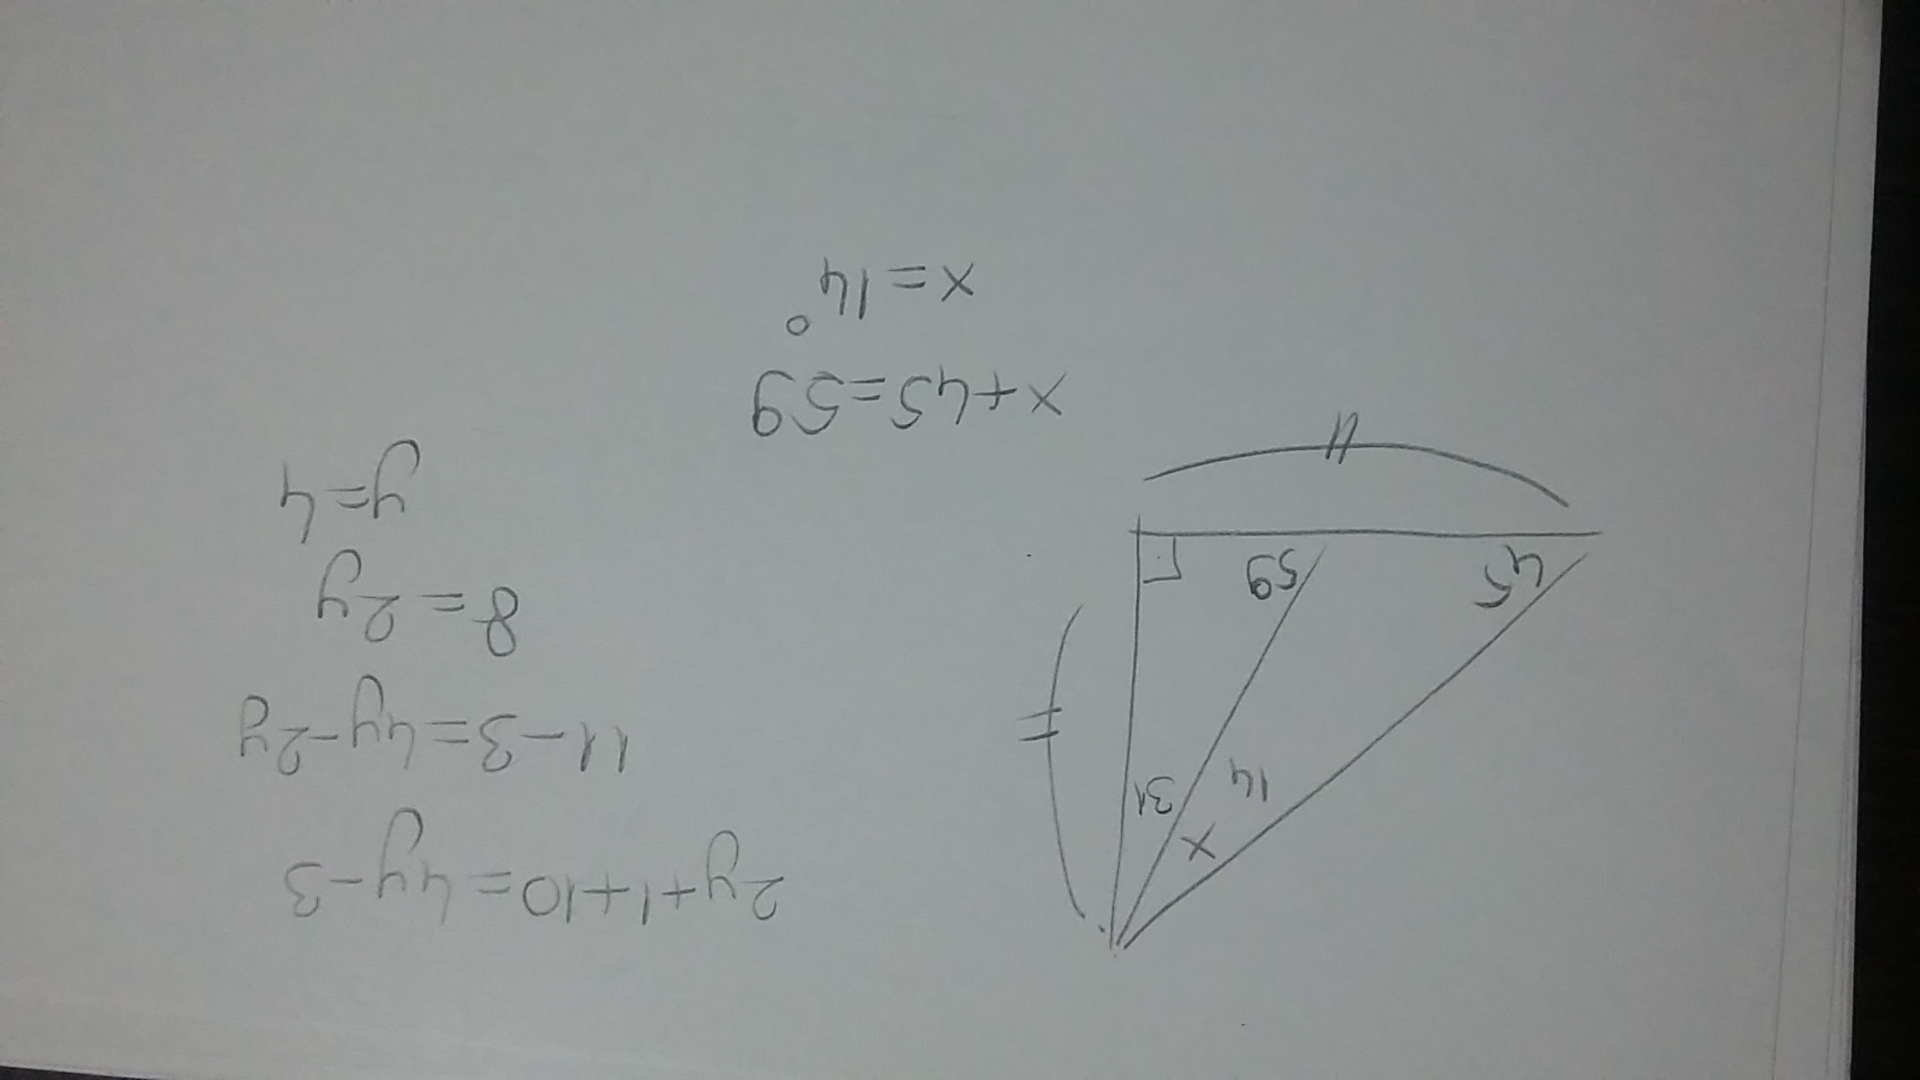 x
14
31
45
59
2y+1+10=4y-3
11-3=4y-2y
8=2y
y=4
x+45=59
x=14°